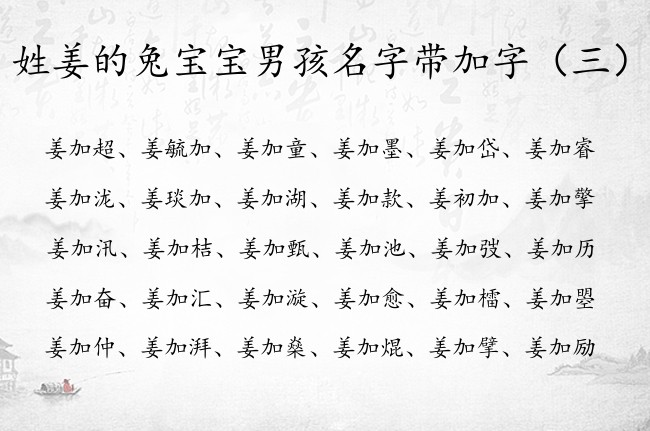 姓姜的兔宝宝男孩名字带加字（三）
姜加超、姜毓加、姜加童、姜加墨、姜加岱、姜加睿
姜加泷、姜琰加、姜加湖、姜加款、姜初加、姜加擎
姜加汛、姜加桔、姜加甄、姜加池、姜加弢、姜加历
姜加奋、姜加汇、姜加漩、姜加愈、姜加檑、姜加曌
姜加仲、姜加湃、姜加燊、姜加焜、姜加擘、姜加励